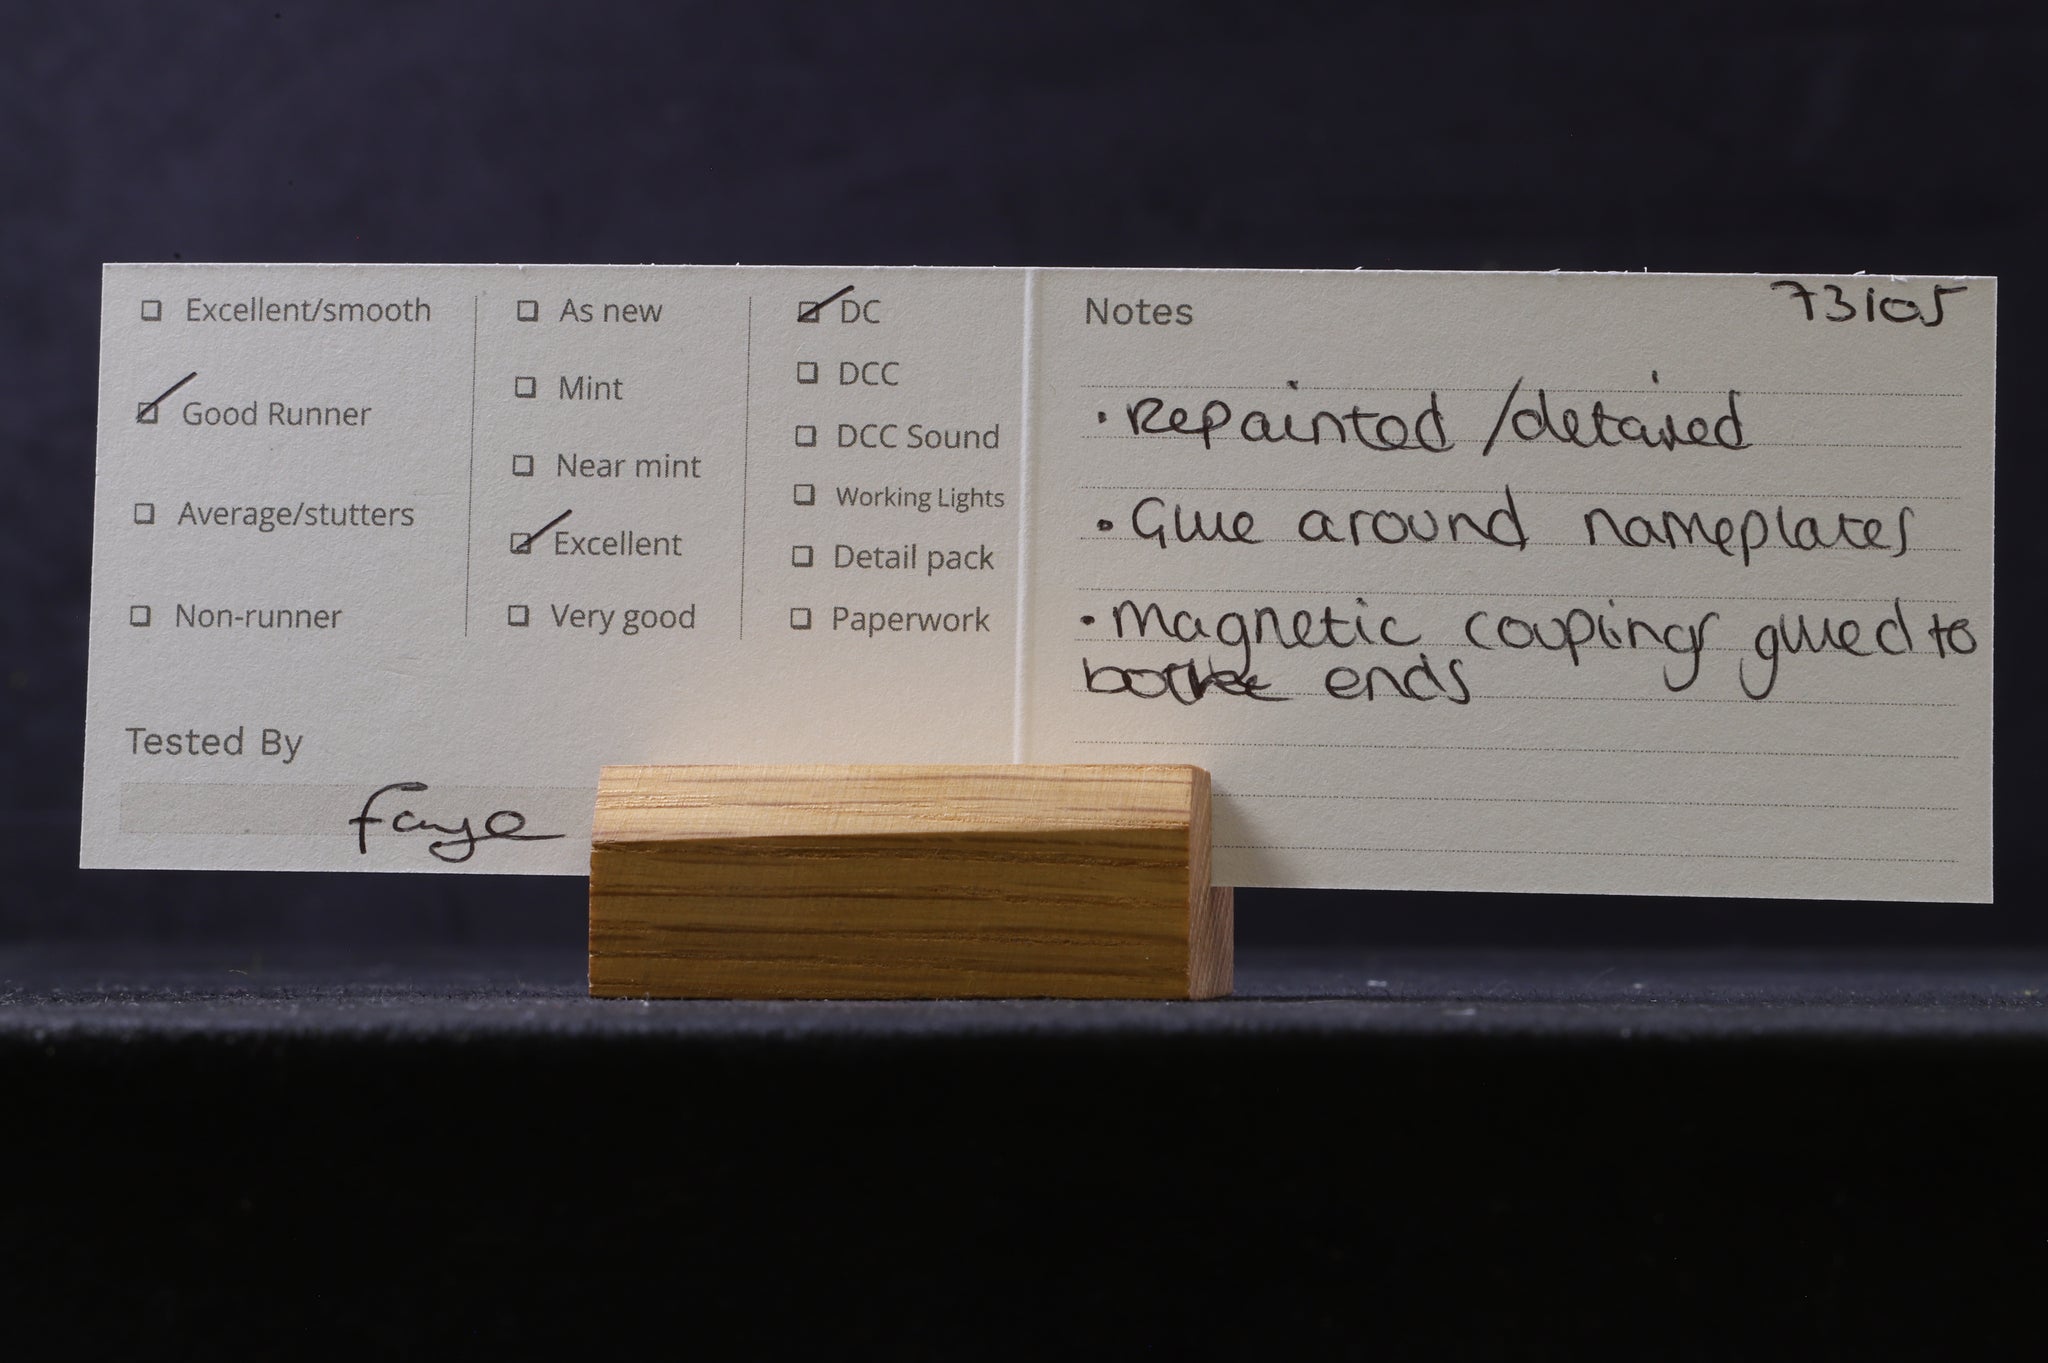 Excellent/smooth
Good Runner
Average/stutters
Non-runner
As new
Mint
Near mint
Excellent
Very good
DC
DCC
DCC Sound
Working Lights
Detail pack
Paperwork
Tested By
Faye
Notes
73105
• Repainted / detailed
• Glue around nameplates
• Magnetic couplings glued to
ends